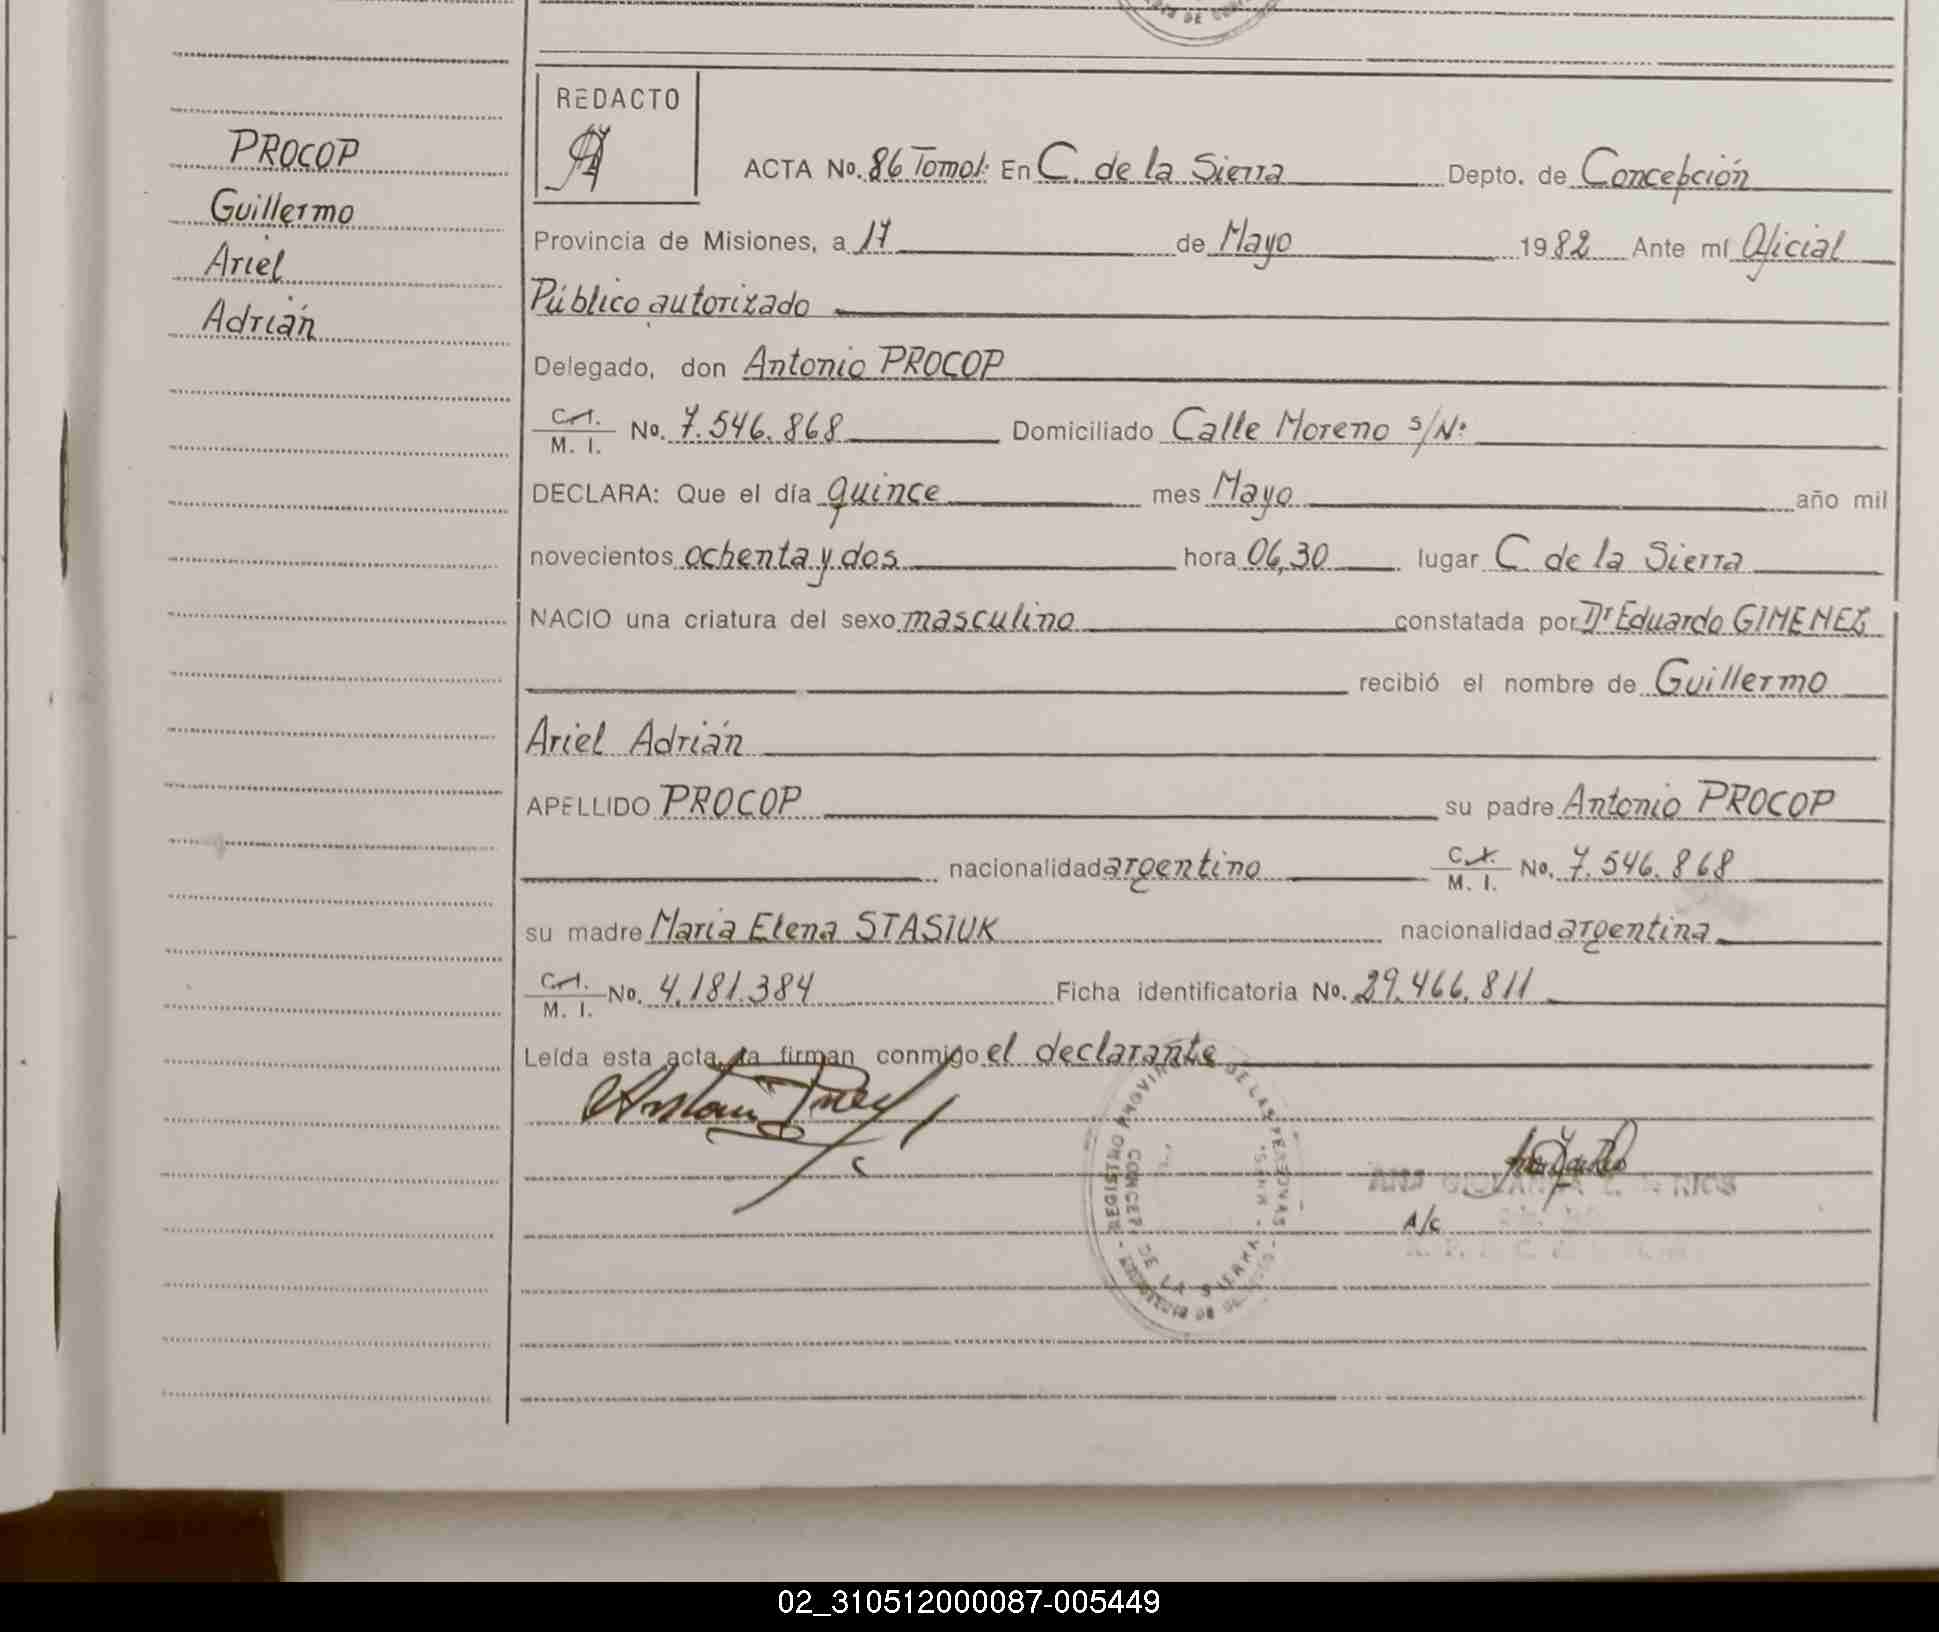 PROCOP
Guillermo
Ariel
Adrián
REDACTO
ACTA No. 86 Tomo I: En C. de la Sierra Depto. de Concepción
Provincia de Misiones, a 17 de Mayo 1982 Ante mí Oficial
Público autorizado
Delegado, don Antonio PROCOP
C.I. M. I. No. 7.546.868 Domiciliado Calle Moreno s/Nº
DECLARA: Que el día quince mes Mayo año mil
novecientos ochenta y dos hora 06,30 lugar C. de la Sierra
NACIO una criatura del sexo masculino constatada por Dr Eduardo GIMENEZ
recibió el nombre de Guillermo
Ariel Adrián
APELLIDO PROCOP su padre Antonio PROCOP
nacionalidad argentino C.I. M. I. No. 7.546.868
su madre María Elena STASIUK nacionalidad argentina
C.I. M. I. No. 4.181.384 Ficha identificatoria No. 29.466.811
Leída esta acta, la firman conmigo el declarante
REGISTRO PROVINCIAL DE LAS PERSONAS
DE LA SIERRA
A/c
02_310512000087-005449